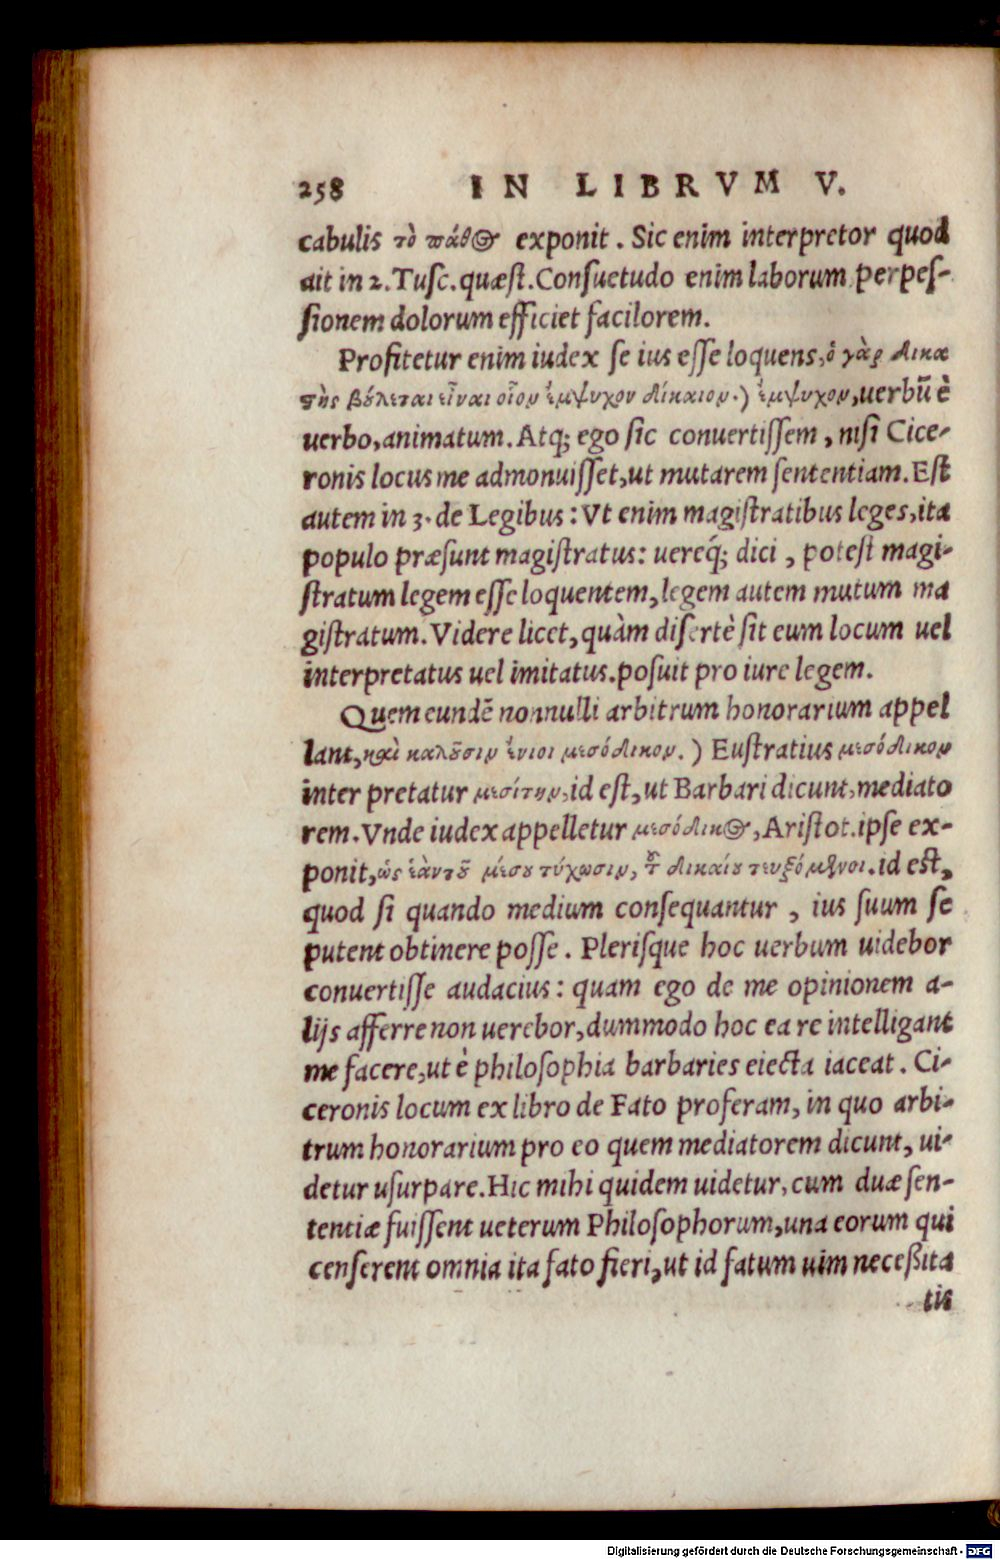 258 IN LIBRVM V.
cabulis τὸ πάθος exponit. Sic enim interpretor quod
ait in 2. Tusc. quæst. Consuetudo enim laborum perpes-
sionem dolorum efficiet facilorem.
Profitetur enim iudex se ius esse loquens, ὁ γὰρ δικα
στὴς βούλεται εἶναι οἷον ἔμψυχον δίκαιον.) ἔμψυχον, uerbũ è
uerbo, animatum. Atq; ego sic conuertissem, nisi Cice-
ronis locus me admonuisset, ut mutarem sententiam. Est
autem in 3. de Legibus: Vt enim magistratibus leges, ita
populo præsunt magistratus: uereq́; dici, potest magi-
stratum legem esse loquentem, legem autem mutum ma
gistratum. Videre licet, quàm disertè sit eum locum uel
interpretatus uel imitatus. posuit pro iure legem.
Quem eundẽ nonnulli arbitrum honorarium appel
lant, καὶ καλοῦσιν ἔνιοι μεσόδικον.) Eustratius μεσόδικον
interpretatur μεσίτην, id est, ut Barbari dicunt, mediato
rem. Vnde iudex appelletur μεσόδικος, Aristot. ipse ex-
ponit, ὡς ἐὰν τοῦ μέσου τύχωσιν, τοῦ δικαίου τευξόμενοι. id est,
quod si quando medium consequantur, ius suum se
putent obtinere posse. Plerisque hoc uerbum uidebor
conuertisse audacius: quam ego de me opinionem a-
lijs afferre non uerebor, dummodo hoc ea re intelligant
me facere, ut è philosophia barbaries eiecta iaceat. Ci-
ceronis locum ex libro de Fato proferam, in quo arbi-
trum honorarium pro eo quem mediatorem dicunt, ui-
detur usurpare. Hic mihi quidem uidetur, cum duæ sen-
tentiæ fuissent ueterum Philosophorum, una eorum qui
censerent omnia ita fato fieri, ut id fatum uim neceßita
tis
Digitalisierung gefördert durch die Deutsche Forschungsgemeinschaft - DFG